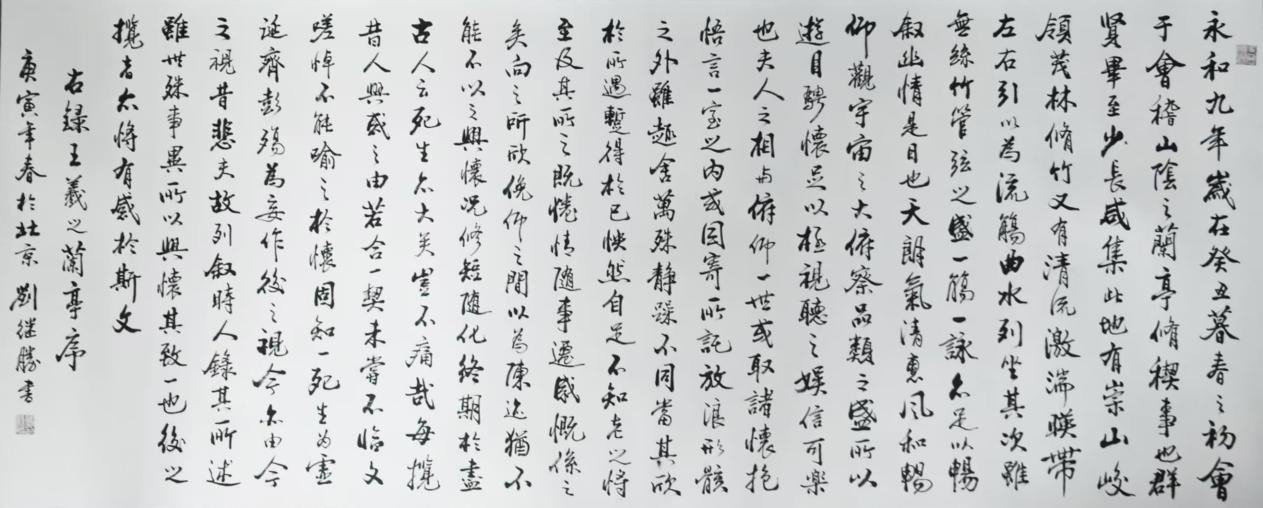 永和九年歲在癸丑暮春之初會
于會稽山陰之蘭亭脩禊事也群
賢畢至少長咸集此地有崇山峻
領茂林脩竹又有清流激湍暎帶
左右引以為流觴曲水列坐其次雖
無絲竹管弦之盛一觴一詠亦足以暢
叙幽情是日也天朗氣清惠風和暢
仰觀宇宙之大俯察品類之盛所以
遊目騁懷足以極視聽之娛信可樂
也夫人之相与俯仰一世或取諸懷抱
悟言一室之内或因寄所託放浪形骸
之外雖趣舍萬殊静躁不同當其欣
於所遇蹔得於己怏然自足不知老之將
至及其所之既惓情随事遷感慨係之
矣向之所欣俛仰之閒以為陳迹猶不
能不以之興懷况修短随化終期於盡
古人云死生亦大矣豈不痛哉每攬
昔人興感之由若合一契未嘗不臨文
嗟悼不能喻之於懷固知一死生為虛
誕齊彭殤為妄作後之視今亦由今
之視昔悲夫故列叙時人錄其所述
雖世殊事異所以興懷其致一也後之
攬者亦將有感於斯文
右録王羲之蘭亭序
庚寅年春於北京劉继勝書